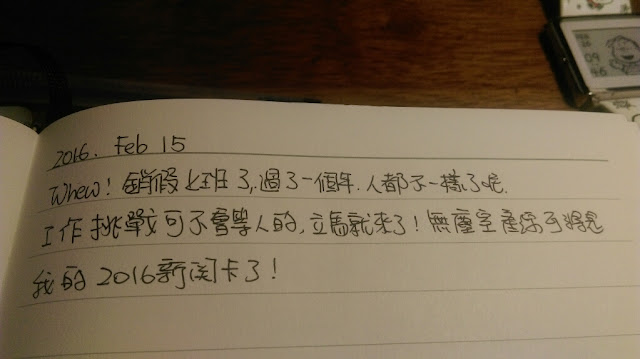 2016. Feb 15
Whew! 銷假上班了, 過了一個年, 人都不一樣了呢.
工作挑戰可不會等人的, 立馬就來了! 無塵室產線可將是
我的 2016 新関卡了!
09
46